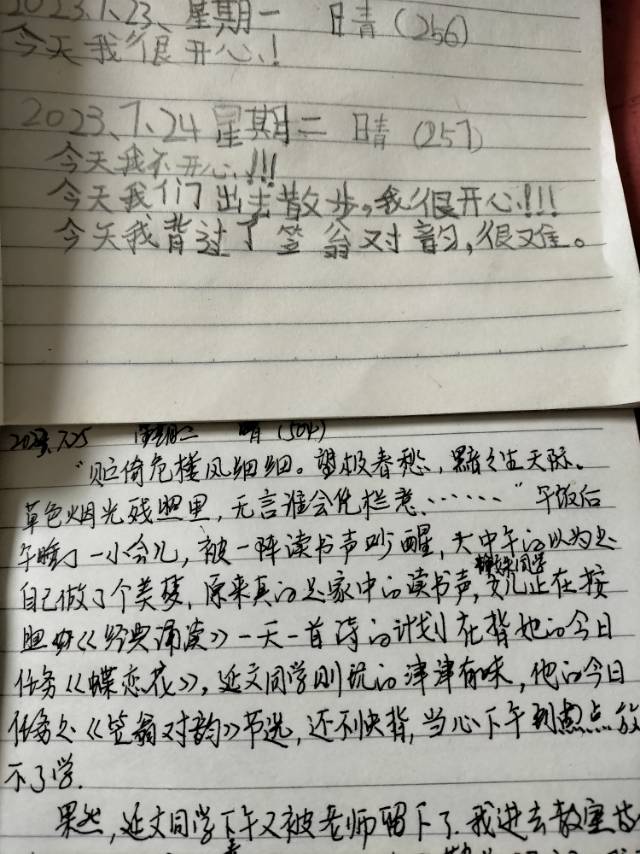 2023.1.23、星期一 晴(256)
今天我很开心!
2023、7、24 星期二 晴(257)
今天我不开心!!!
今天我们出去散步。我很开心!!!
今天我背过了笠翁对韵,很难。
星期二 晴(504)
“伫倚危楼风细细。望极春愁,黯黯生天际。
草色烟光残照里,无言谁会凭栏意……”午饭后
午睡了一小会儿,被一阵读书声吵醒,大中午的以为是
自己做了个美梦,原来真的是家中的读书声,女儿正在按
照《经典诵读》一天一首诗的计划在背她的今日
任务《蝶恋花》,延文同学则玩的津津有味,他的今日
任务是《笠翁对韵》节选,还不快背,当心下午到点放
不了学.
果然,延文同学下午又被老师留下了.我进去教室